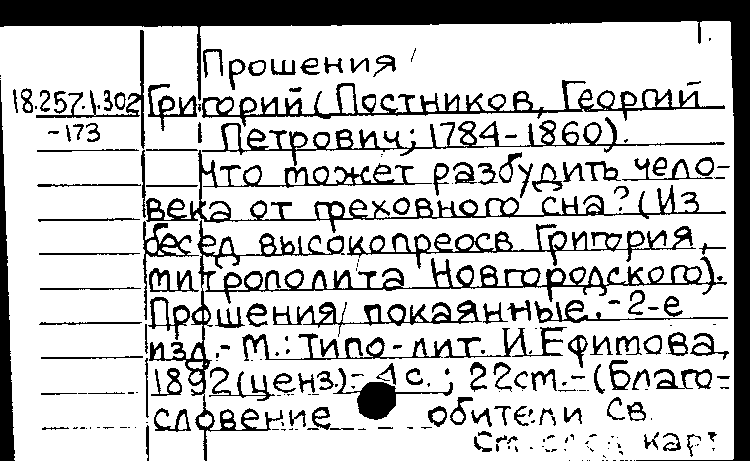 1.
Прошения
18.257.1.302 Григорий (Постников, Георгий
-173 Петрович; 1784-1860).
Что может разбудить чело-
века от греховного сна? (Из
бесед высокопреосв Григория,
митрополита Новгородского).
Прошения покаянные. - 2-е
изд. - М.: Типо-лит. И. Ефимова,
1892 (ценз.). - 4 с.; 22 см. - (Благо-
словение обители Св.
См. след карт